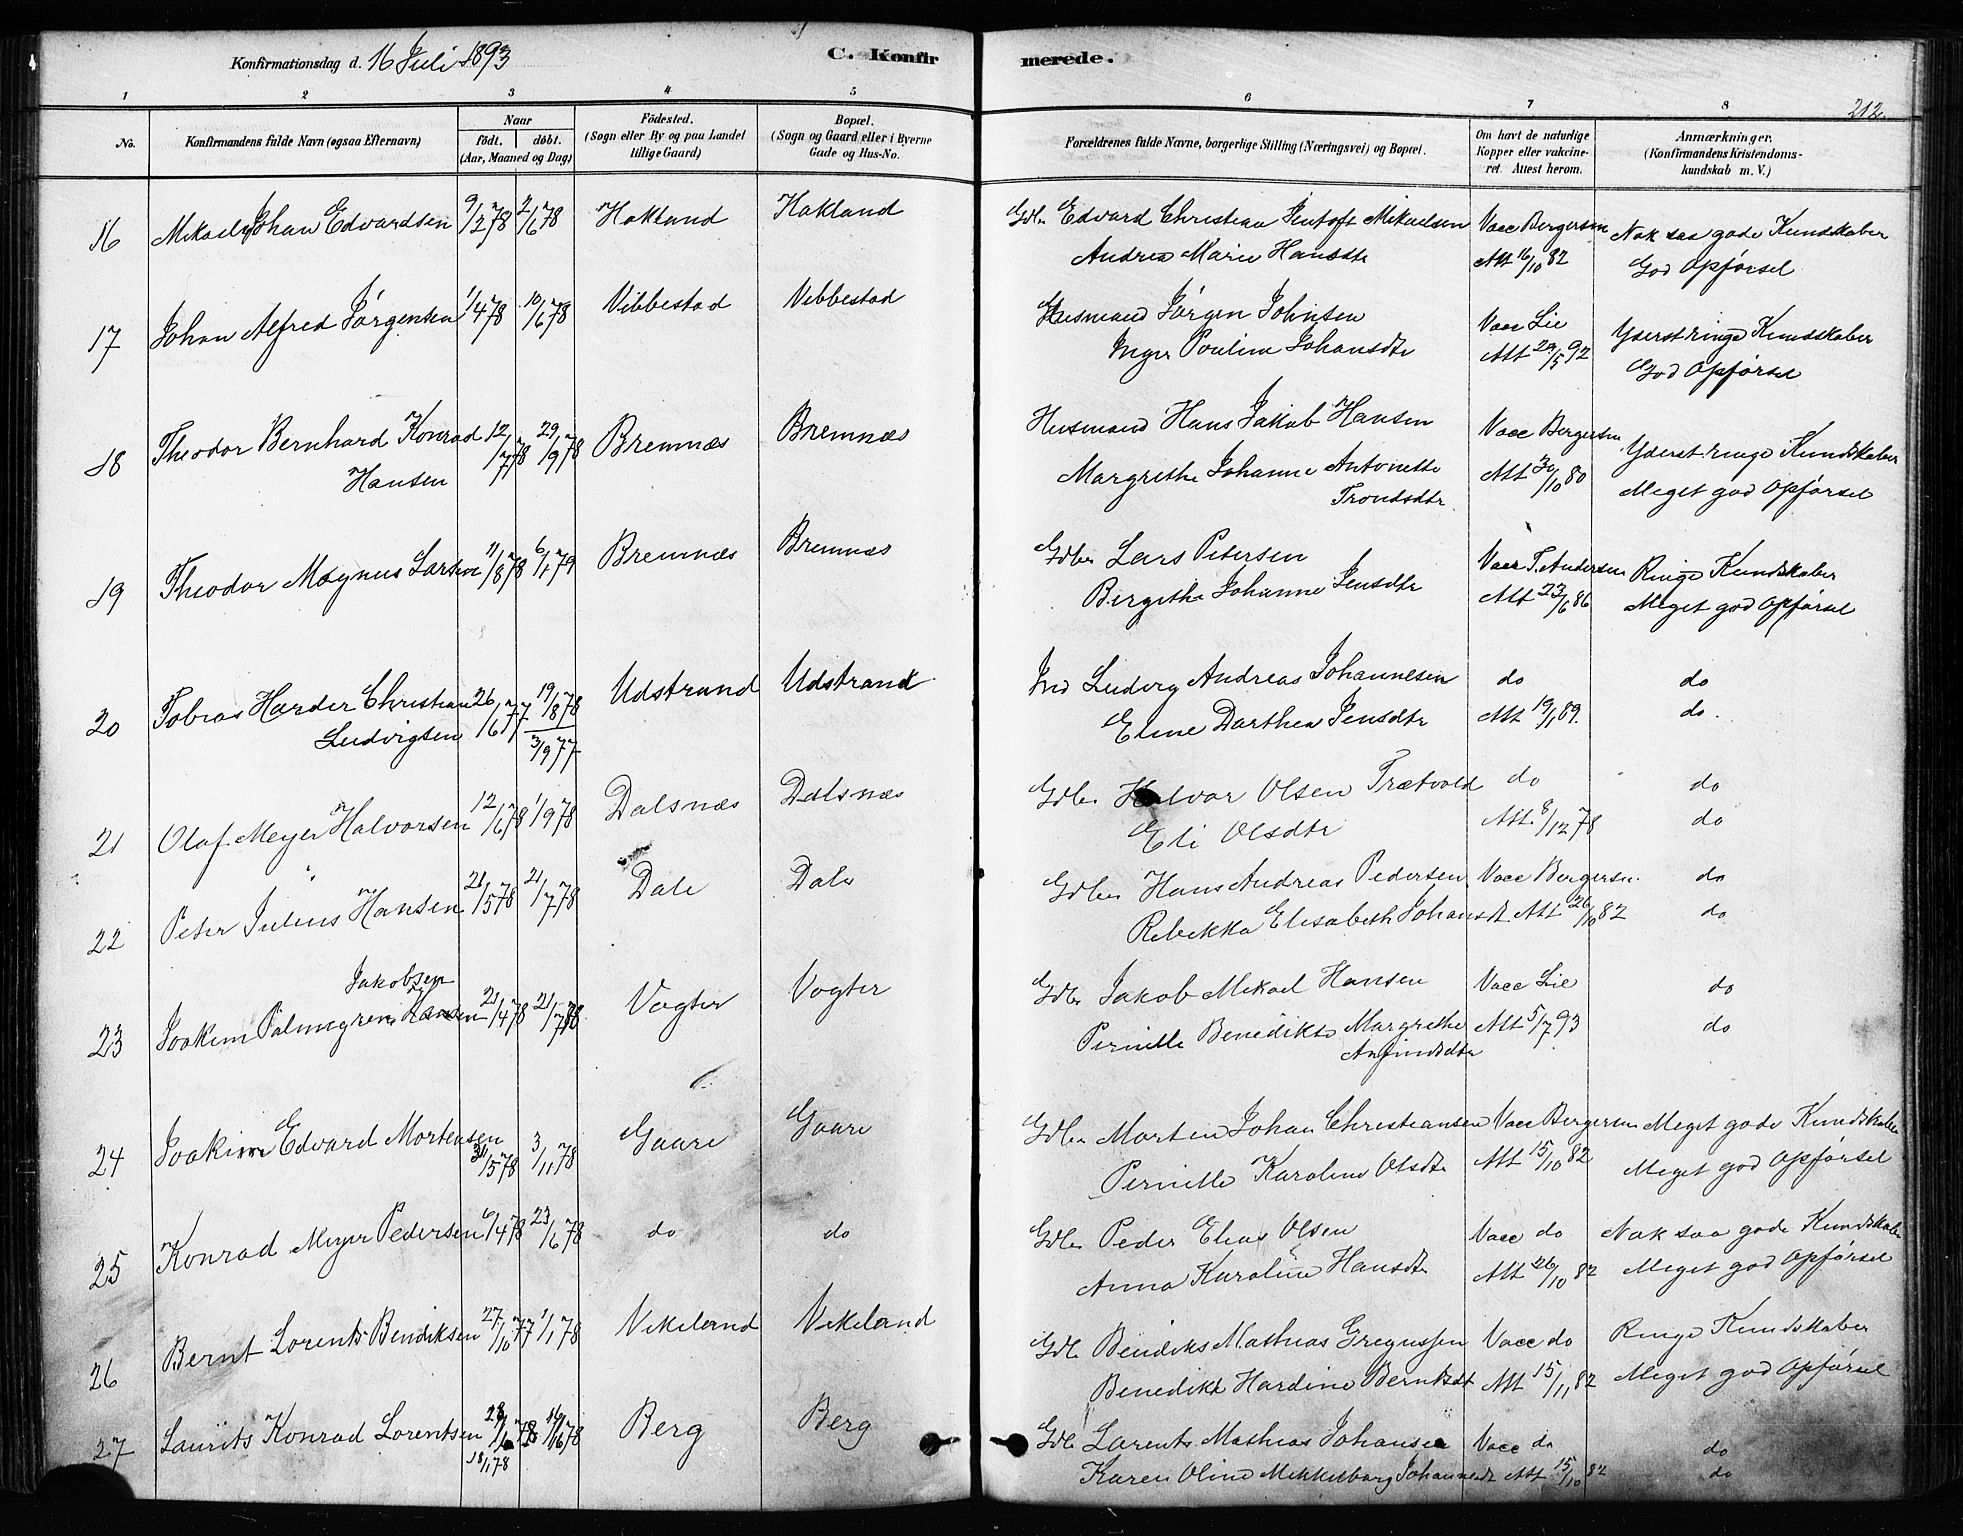 Konfirmationsdag d. 16 Juli 1893
C. Konfirmerede.
212.
1 2 3 4 5 6 7 8
No. Konfirmandens fulde Navn (ogsaa Efternavn) Naar født. døbt. (Aar, Maaned og Dag) Fødested. (Sogn eller By og paa Landet tillige Gaard) Bopæl. (Sogn og Gaard eller i Byerne Gade og Hus-No. Forældrenes fulde Navne, borgerlige Stilling (Næringsvei) og Bopæl. Om havt de naturlige Kopper eller vakcineret. Attest herom. Anmærkninger, (Konfirmandens Kristendomskundskab m. V.)
16 Mikael Johan Edvardsen 9/2 78 2/6 78 Hokland Hokland Gdbr Edvard Christian Jentoft Mikaelsen Vacc Bergersen Nok saa gode Kundskaber
Andrea Marie Hansdtr Att 16/10 82 God Opførsel
17 Johan Alfred Jørgensen 1/4 78 10/6 78 Vibbestad Vebbestad Husmand Jørgen Johnsen Vacc Lie Yderst ringe Kundskaber
Inger Pouline Johansdtr Att 29/5 92 God Opførsel
18 Theodor Bernhard Konrad 12/7 78 29/9 78 Bremnæs Bremnæs Husmand Hans Jakob Hansen Vacc Bergersen Yderst ringe Kundskaber
Hansen Margrethe Johanne Antonette Att 30/10 80 Meget god Opførsel
Trondsdtr
19 Theodor Magnus Larsen 11/8 78 6/1 79 Bremnæs Bremnæs Gdbr Lars Petersen Vacc T. Andersen Ringe Kundskaber
Bergithe Johanne Jensdtr Att 23/6 86 Meget god Opførsel
20 Tobias Harder Christian 26/6 77 19/8 78 Udstrand Udstrand Ind Ludvig Andreas Johannesen do do
Ludvigsen 3/9 77 Eline Dorthea Jensdtr Att 19/1 89. do.
21 Olaf Meyer Halvorsen 12/6 78 1/9 78 Dalsnæs Dalsnæs Gdbr Halvor Olsen Trætvold do do
Eli Olsdtr Att. 8/12 78 do
22 Peter Julius Hansen 21/5 78 21/7 78 Dale Dale Gdbr Hans Andreas Pedersen Vacc Bergersen. do
Rebekka Elisabeth Johansdt Att 26/10 82 do
Jakobsen
23 Joakim Palmgren Hansen 21/4 78 21/7 78 Vogter Vogter Gdbr Jakob Mikael Hansen Vacc Lie do
Pernille Benedikte Margrethe Att 5/7 93 do
Anfindsdtr
24 Joakim Edvard Mortensen 31/5 78 3/11 78 Gaare Gaare Gdbr Morten Johan Christiansen Vacc Bergersen Meget gode Kundskaber
Pernille Karoline Olsdtr Att 15/10 82 Meget god Opførsel
25 Konrad Meyer Pedersen 6/4 78 23/6 78 do do Gdbr Peder Elias Olsen Vacc do Nok saa gode Kundskaber
Anna Karoline Hansdtr Att 26/10 82 Meget god Opførsel
26 Bernt Lorents Bendiksen 27/10 77 1/1 78 Vikeland Vikeland Gdbr Bendiks Mathias Gregussen Vacc do Ringe Kundskaber
Benedikt Hardine Berntsdt Att 15/11 82 Meget god Opførsel
27 Laurits Konrad Lorentsen 78 78 Berg Berg Gdbr Lorents Mathias Johansen Vacc do do
18/1 78 Karen Oline Mekkelborg Johannesdt Att 15/10 82 do